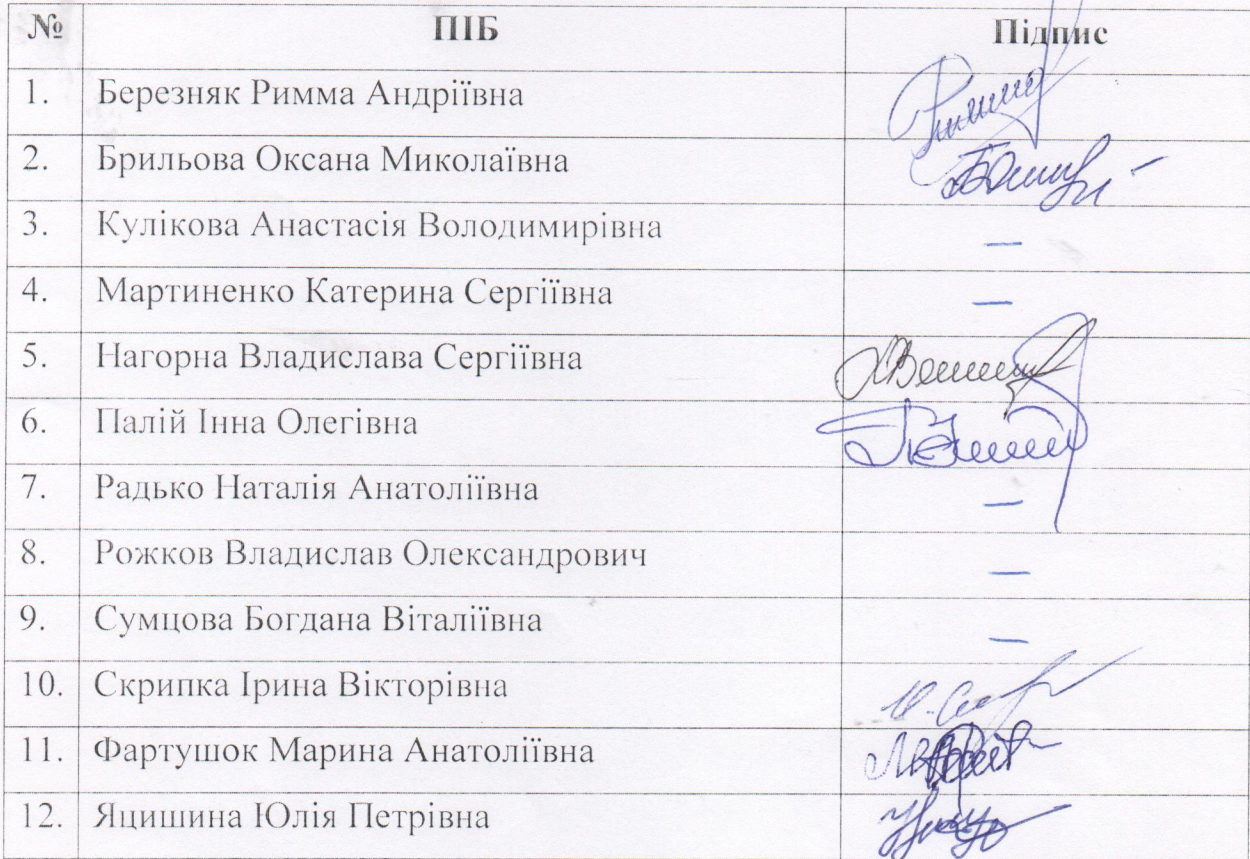 № ПІБ Підпис
1. Березняк Римма Андріївна
2. Брильова Оксана Миколаївна
3. Кулікова Анастасія Володимирівна —
4. Мартиненко Катерина Сергіївна —
5. Нагорна Владислава Сергіївна
6. Палій Інна Олегівна
7. Радько Наталія Анатоліївна —
8. Рожков Владислав Олександрович —
9. Сумцова Богдана Віталіївна —
10. Скрипка Ірина Вікторівна
11. Фартушок Марина Анатоліївна
12. Яцишина Юлія Петрівна